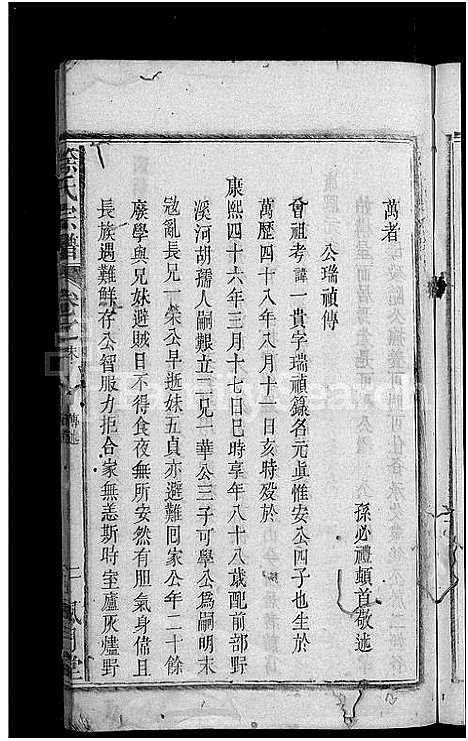 萬者
公瑞禎傳
孫必禮頓首敬述
曾祖考諱一貴字瑞禎錄名元眞惟安公四子也生於
萬歷四十八年八月十一日亥時殁於
康熙四十六年三月十七日巳時享年八十八歲配前部野
溪河胡孺人嗣艱立二兄一華公三子可學公爲嗣明末
寇亂長兄一榮公早逝妹五貞亦避難回家公年二十餘
廢學與兄妹避賊日不得食夜無所安然有胆氣身俻且
長族遇難鮮存公智服力拒合家無恙斯時室廬灰燼野
氏宗譜
卷之一末
傳述
二